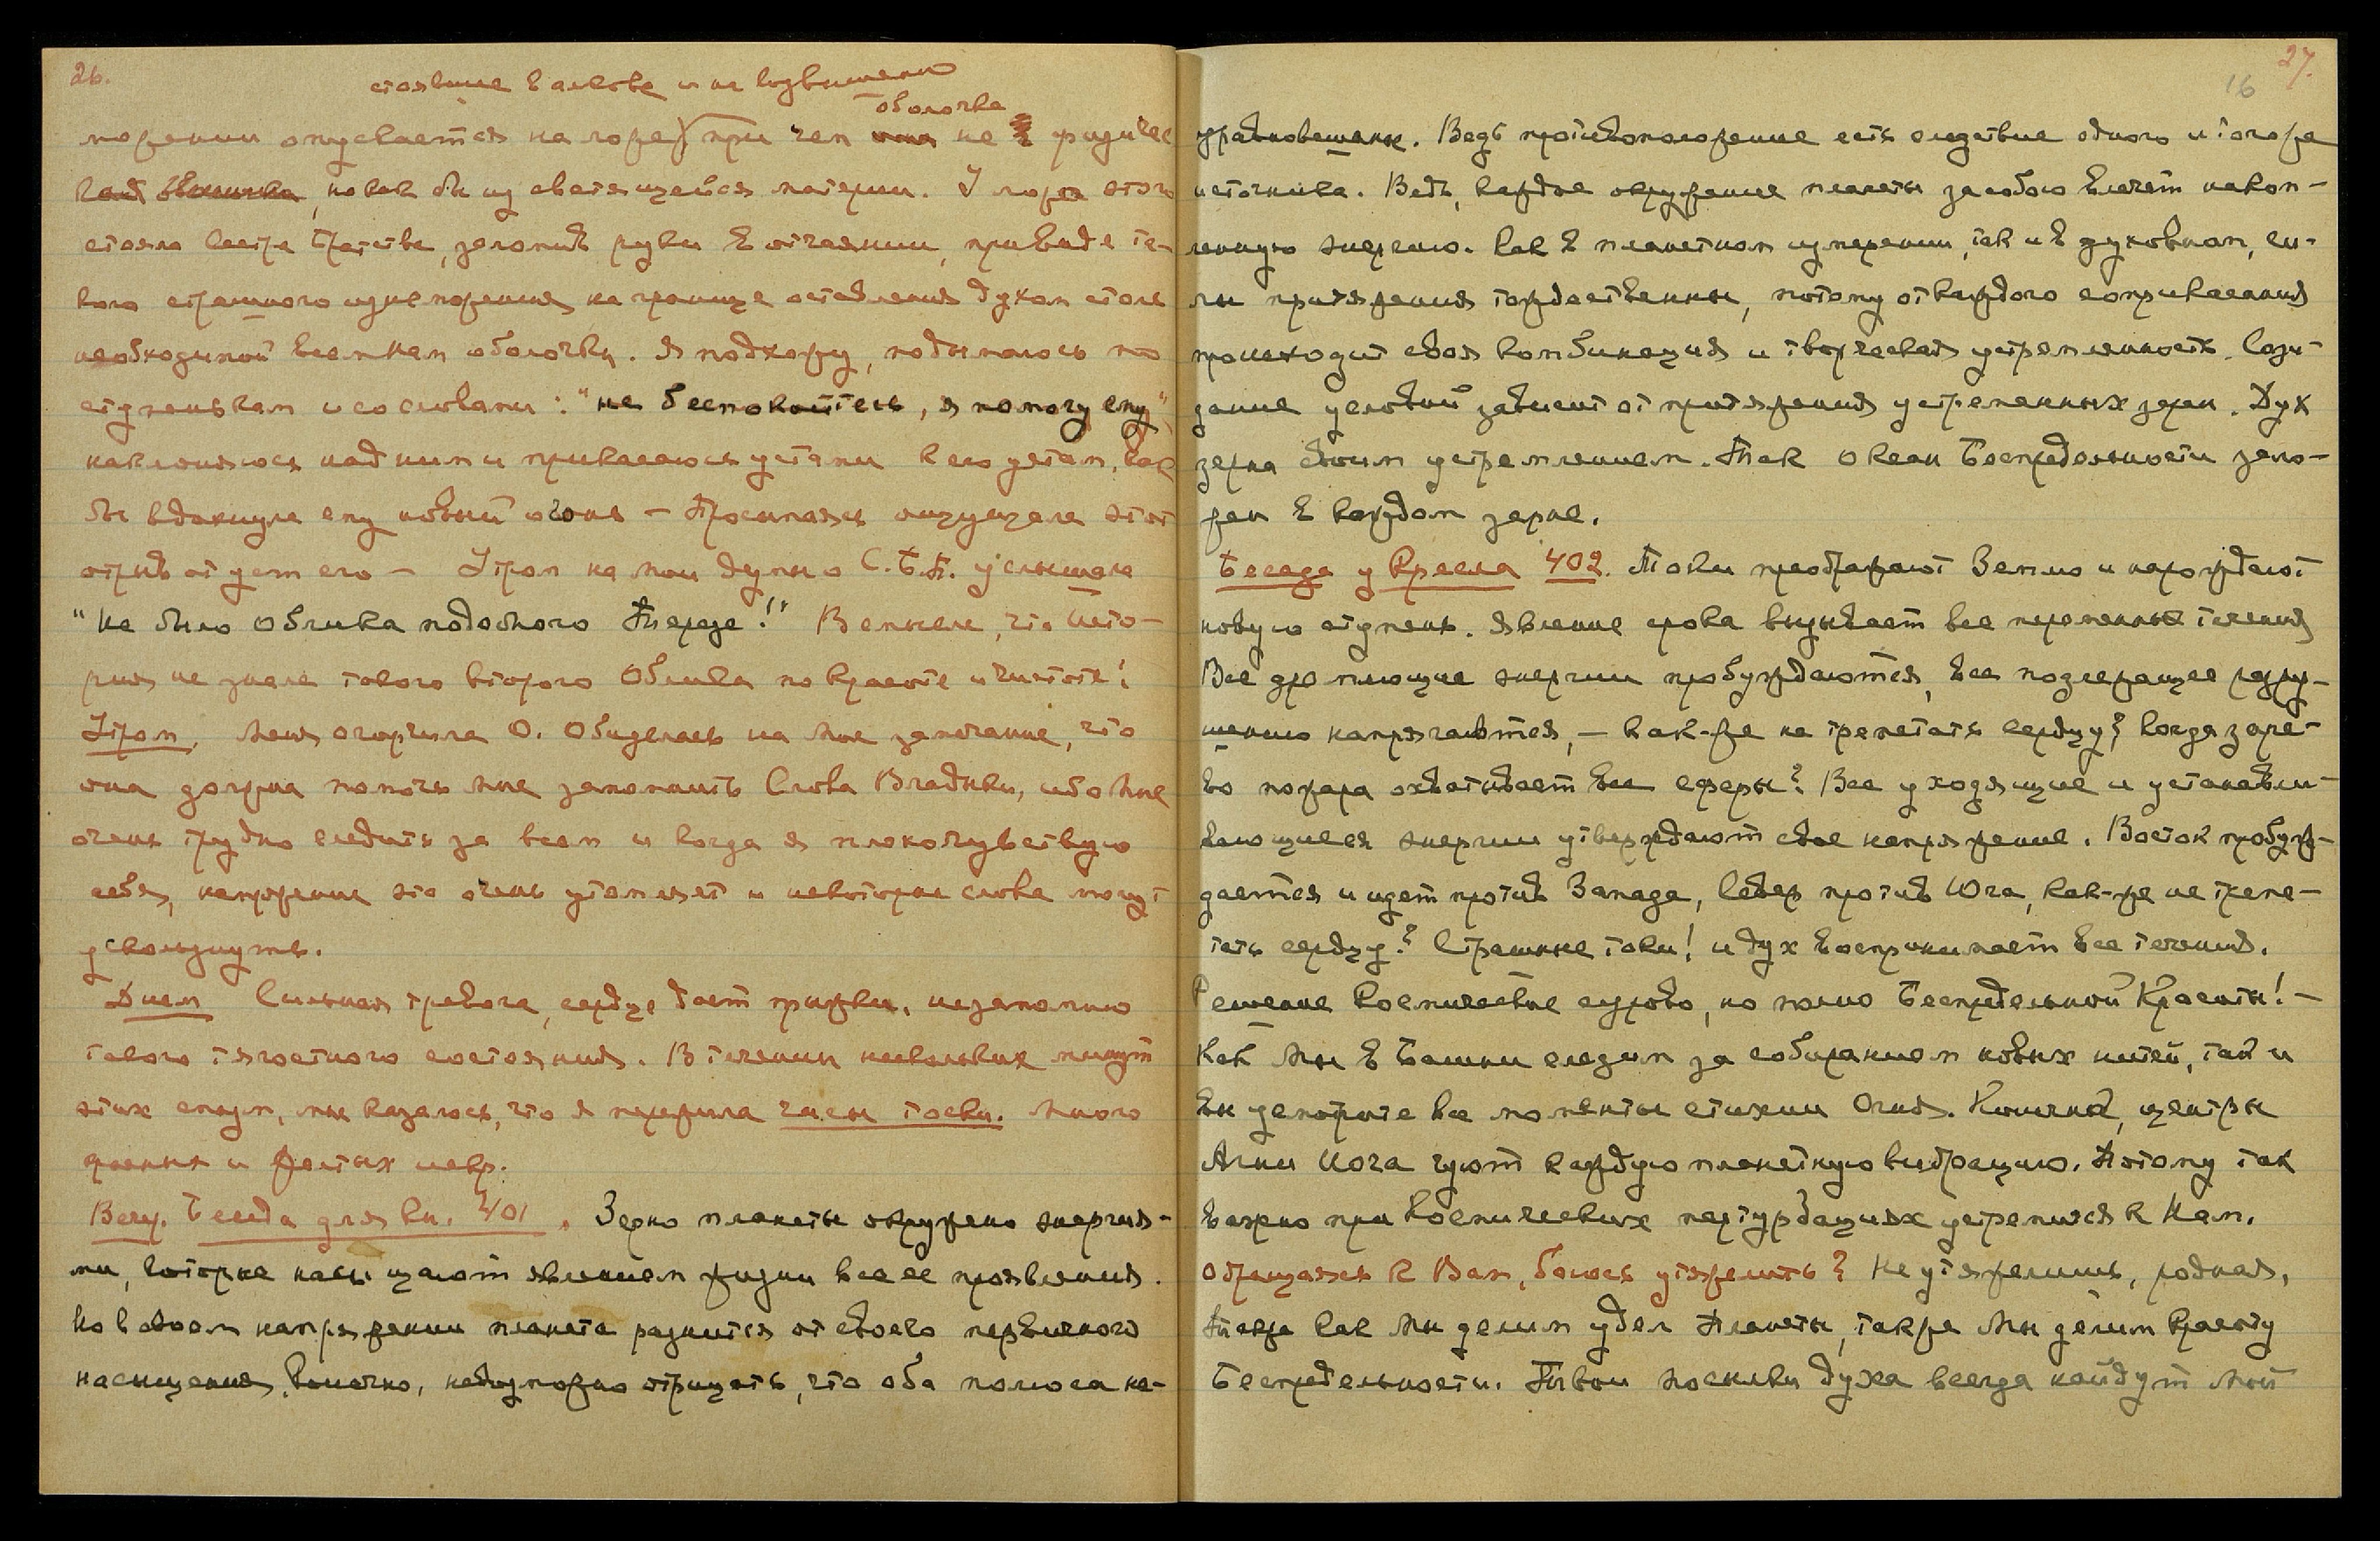 26.
стоявше в алькове и на возвышении
оболочка
можении опускается на ложе) при чем она не физичес
кая оболочка, но как бы из светящейся материи. У ложа этого
стояла Сестра Братства, заломив руки в отчаянии, при виде та-
кого страшного изнеможения на границе оставления духом столь
необходимой всем нам оболочки. Я подхожу, подымаюсь по
ступенькам и со словами: "не беспокойтесь, я помогу ему"
наклоняюсь над ним и прикасаюсь устами к его устам, как
бы вдохнула ему новый огонь — Просыпаясь ощущала этот
отрыв от уст его — Утром на мои думы о С.Б.П. услышала
"Не было Облика подобного Терезе!" В смысле, что исто-
рия не знала такого второго Облика по красоте и чистоте!
Утром, меня огорчила О. Обиделась на мое замечание, что
она должна помочь мне запомнить Слова Владыки, ибо мне
очень трудно следить за всем и когда я плохо чувствую
себя, напряжение это очень утомляет и некоторые слова могут
ускользнуть.
Днем Сильная тревога, сердце дает прыжки, не запомню
такого тягостного состояния. В течении нескольких минут
этих спазм, мне казалось, что я пережила часы тоски. Много
красных и желтых искр.
Веч. Беседа для кн. 401. Зерно планеты окружено энергия-
ми, которые насыщают явлением жизни все ее проявления.
Но в своем напряжении планета разнится от своего первичного
насыщения. Конечно, невозможно отрицать, что оба полюса на-
27.
16
уравновешены. Ведь противоположение есть следствие одного и того же
источника. Ведь, каждое окружение планеты за собою влечет накоп-
ленную энергию. Как в планетном измерении, так и в духовном, си-
лы притяжения тождественны, потому от каждого соприкасания
происходит своя комбинация и творческая устремленность. Сози-
дание условий зависит от притяжения устремленных зерен. Дух
зерна своим устремлением. Так Океан Беспредельности зало-
жен в каждом зерне.
Беседа у Кресла 402. Токи преображают Землю и нарождают
новую ступень. Явление срока вызывает все пламенные течения
Все дремлющие энергии пробуждаются, все подлежащее разру-
шению напрягается, — как-же не трепетать сердцу? когда заре-
во пожара охватывает все сферы? Все уходящие и устанавли-
вающиеся энергии утверждают свое напряжение. Восток пробуж-
дается и идет против Запада, Север против Юга, как-же не трепе-
тать сердцу? Страшные токи! и дух воспринимает все течения.
Решение Космическое сурово, но полно Беспредельной Красоты! —
Как Мы в Башни следим за собиранием новых нитей, так и
вы усмотрите все моменты стихии Огня. Конечно, центры
Агни Иога чуют каждую планетную вибрацию. Потому так
важно при Космических пертурбациях устремиться к Нам.
Обращаясь к Вам, боюсь утяжелить? Не утяжелишь, родная,
Также как Мы делим удел Планеты, также Мы делим красоту
Беспредельности. Твои посылки духа всегда найдут Мой